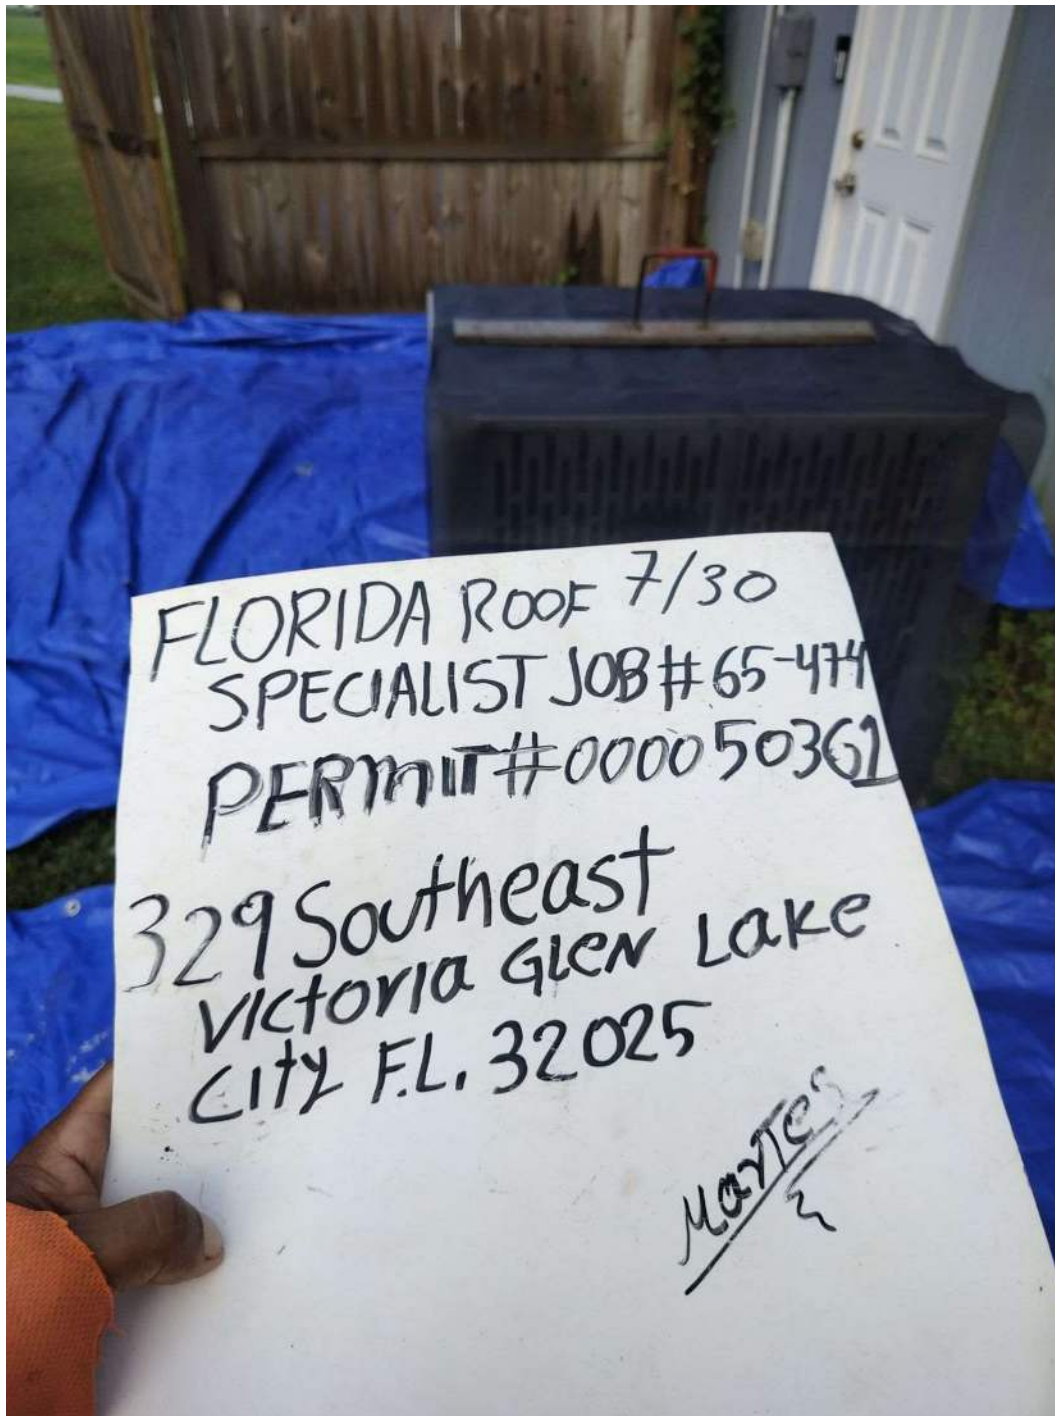 FLORIDA ROOF 7/30
SPECIALIST JOB # 65-474
PERMIT # 000050361
329 Southeast
Victoria GLEN Lake
City F.L. 32025
Martes